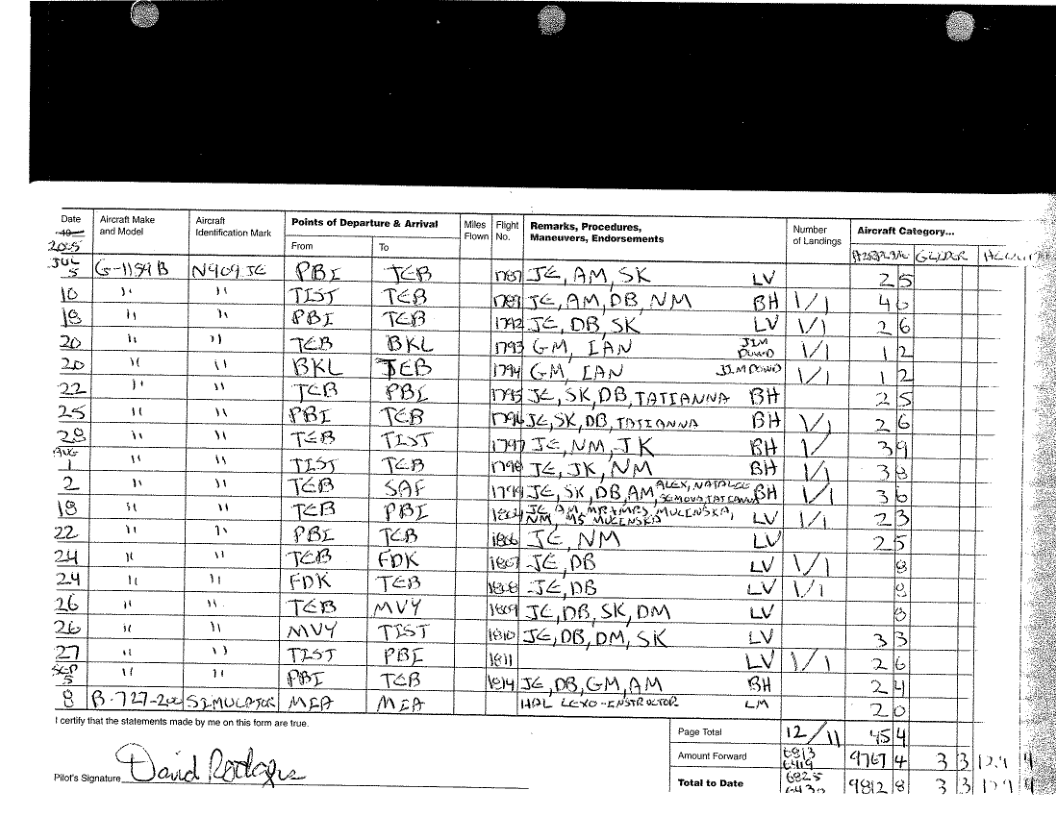 Date Aircraft Make and Model Aircraft Identification Mark Points of Departure & Arrival Miles Flown Flight No. Remarks, Procedures, Maneuvers, Endorsements Number of Landings Aircraft Category...
2005 From To AIRPLANE GLIDER
JUL 5 G-1159B N909JE PBI TEB 1787 JE, AM, SK LV 2 5
10 " " TIST TEB 1789 JE, AM, DB, NM BH 1/1 4 0
18 " " PBI TEB 1792 JE, DB, SK LV 1/1 2 6
20 " " TEB BKL 1793 GM, IAN JIM DOWD 1/1 1 2
20 " " BKL TEB 1794 GM, IAN JIM DOWD 1/1 1 2
22 " " TEB PBI 1795 JE, SK, DB, TATIANNA BH 2 5
25 " " PBI TEB 1796 JE, SK, DB, TATIANNA BH 1/1 2 6
28 " " TEB TIST 1797 JE, NM, JK BH 1/ 3 9
AUG 1 " " TIST TEB 1798 JE, JK, NM BH 1/1 3 8
2 " " TEB SAF 1799 JE, SK, DB, AM ALEX, NATALEE TATIANNA BH 1/1 3 6
18 " " TEB PBI JE, AM, MR + MRS MUCINSKA, NM, MS MUCINSKA LV 1/1 2 3
22 " " PBI TEB 1806 JE, NM LV 2 5
24 " " TEB FDK 1807 JE, DB LV 1/1 8
24 " " FDK TEB 1808 JE, DB LV 1/1 8
26 " " TEB MVY 1809 JE, DB, SK, DM LV 8
26 " " MVY TIST 1810 JE, DB, DM, SK LV 3 3
27 " " TIST PBI 1811 LV 1/1 2 6
SEP 5 " " PBI TEB 1814 JE, DB, GM, AM BH 2 4
8 B-727-200 SIMULATOR MIA MIA HAL LEXO - INSTRUCTOR LM 2 0
I certify that the statements made by me on this form are true.
Page Total 12/11 45 4
Amount Forward 6813 6419 9767 4 3 3
Pilot's Signature David Rodgers
Total to Date 6825 9812 8 3 3